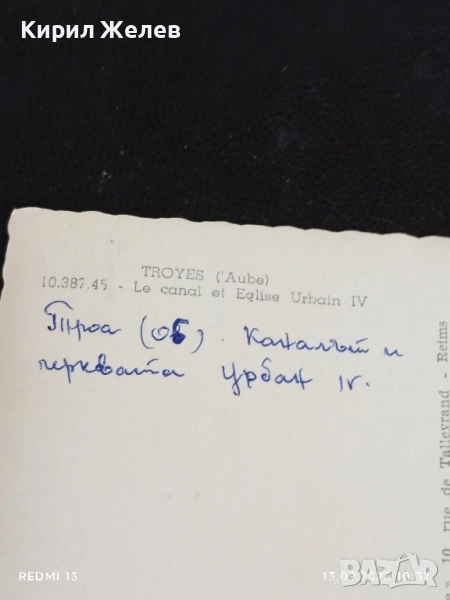 Кирил Желев
TROYES (Aube)
10.387.45 - Le canal et Eglise Urbain IV
Троа (Об). Каналът и
черквата Урбан IV.
10 rue de Talleyrand - Reims
REDMI 13
bazar